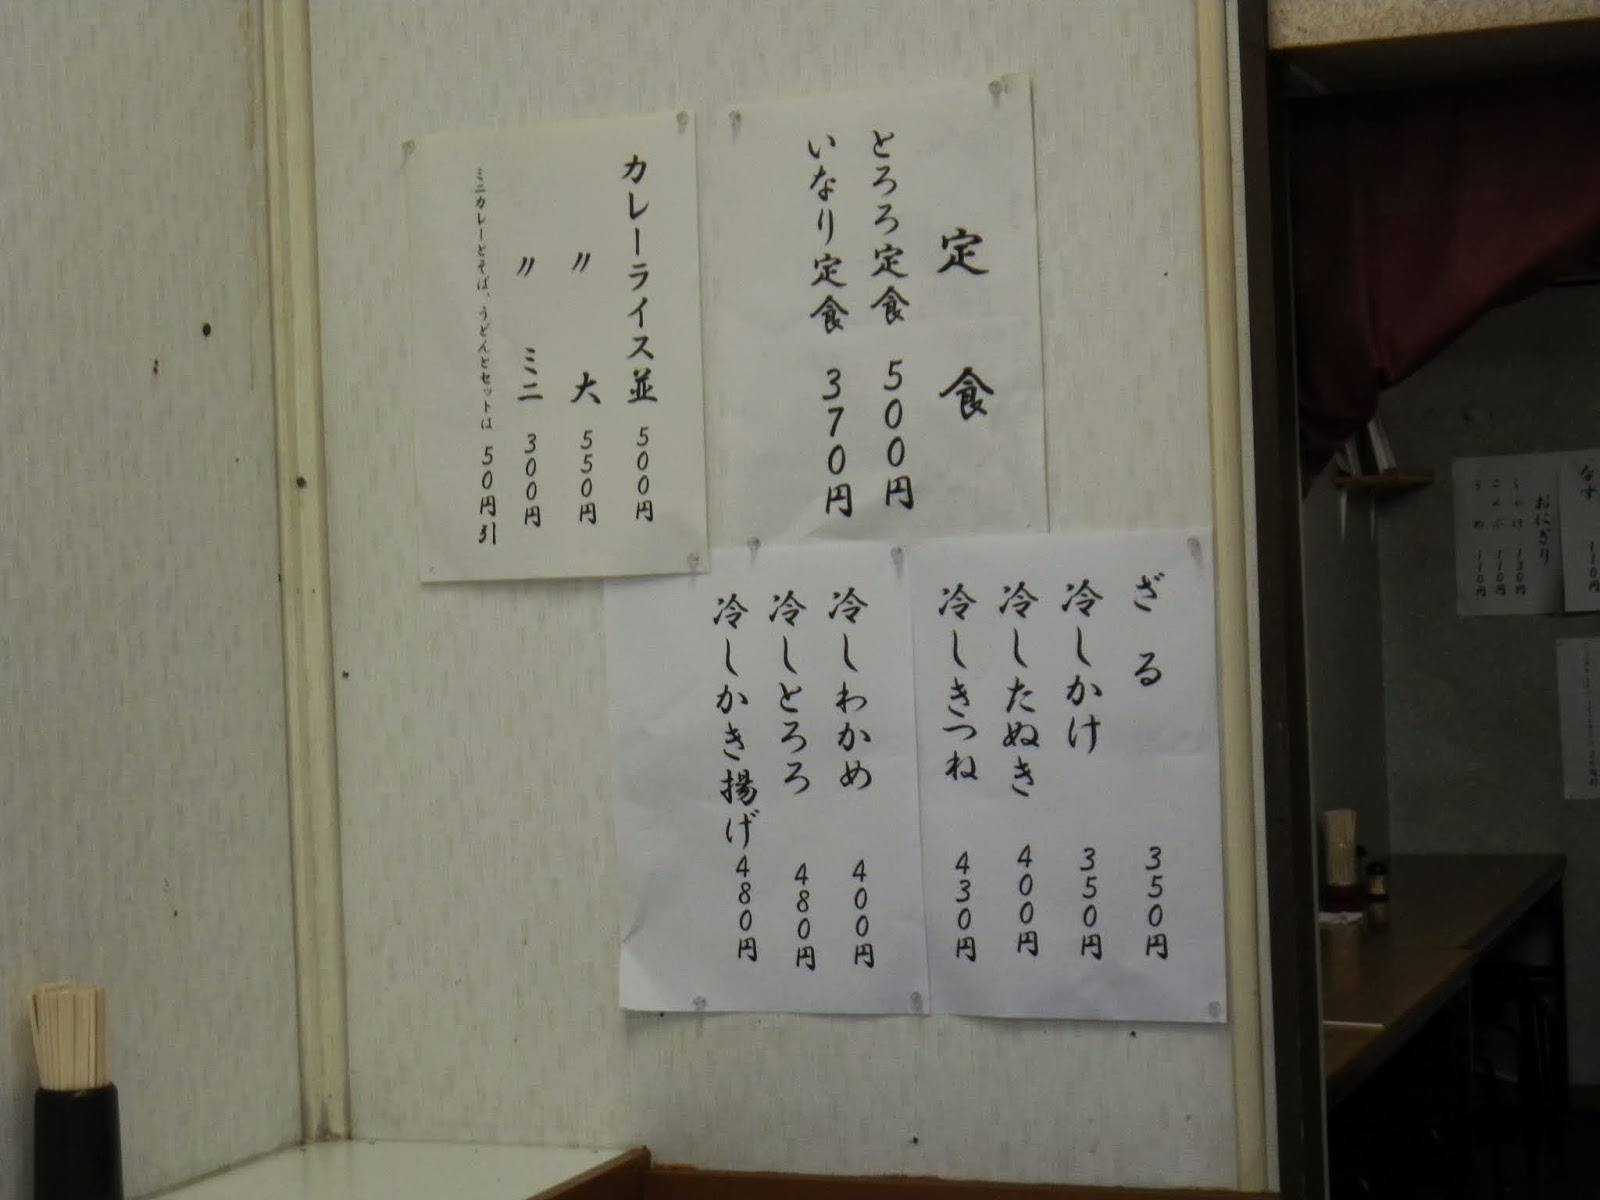 定食
とろろ定食 500円
いなり定食 370円
カレーライス並 500円
〃 大 550円
〃 ミニ 300円
ミニカレーとそば、うどんとセットは 50円引
ざる 350円
冷しかけ 350円
冷したぬき 400円
冷しきつね 430円
冷しわかめ 400円
冷しとろろ 480円
冷しかき揚げ 480円
なす 110円
おにぎり
しゃけ 130円
こんぶ 110円
うめ 110円